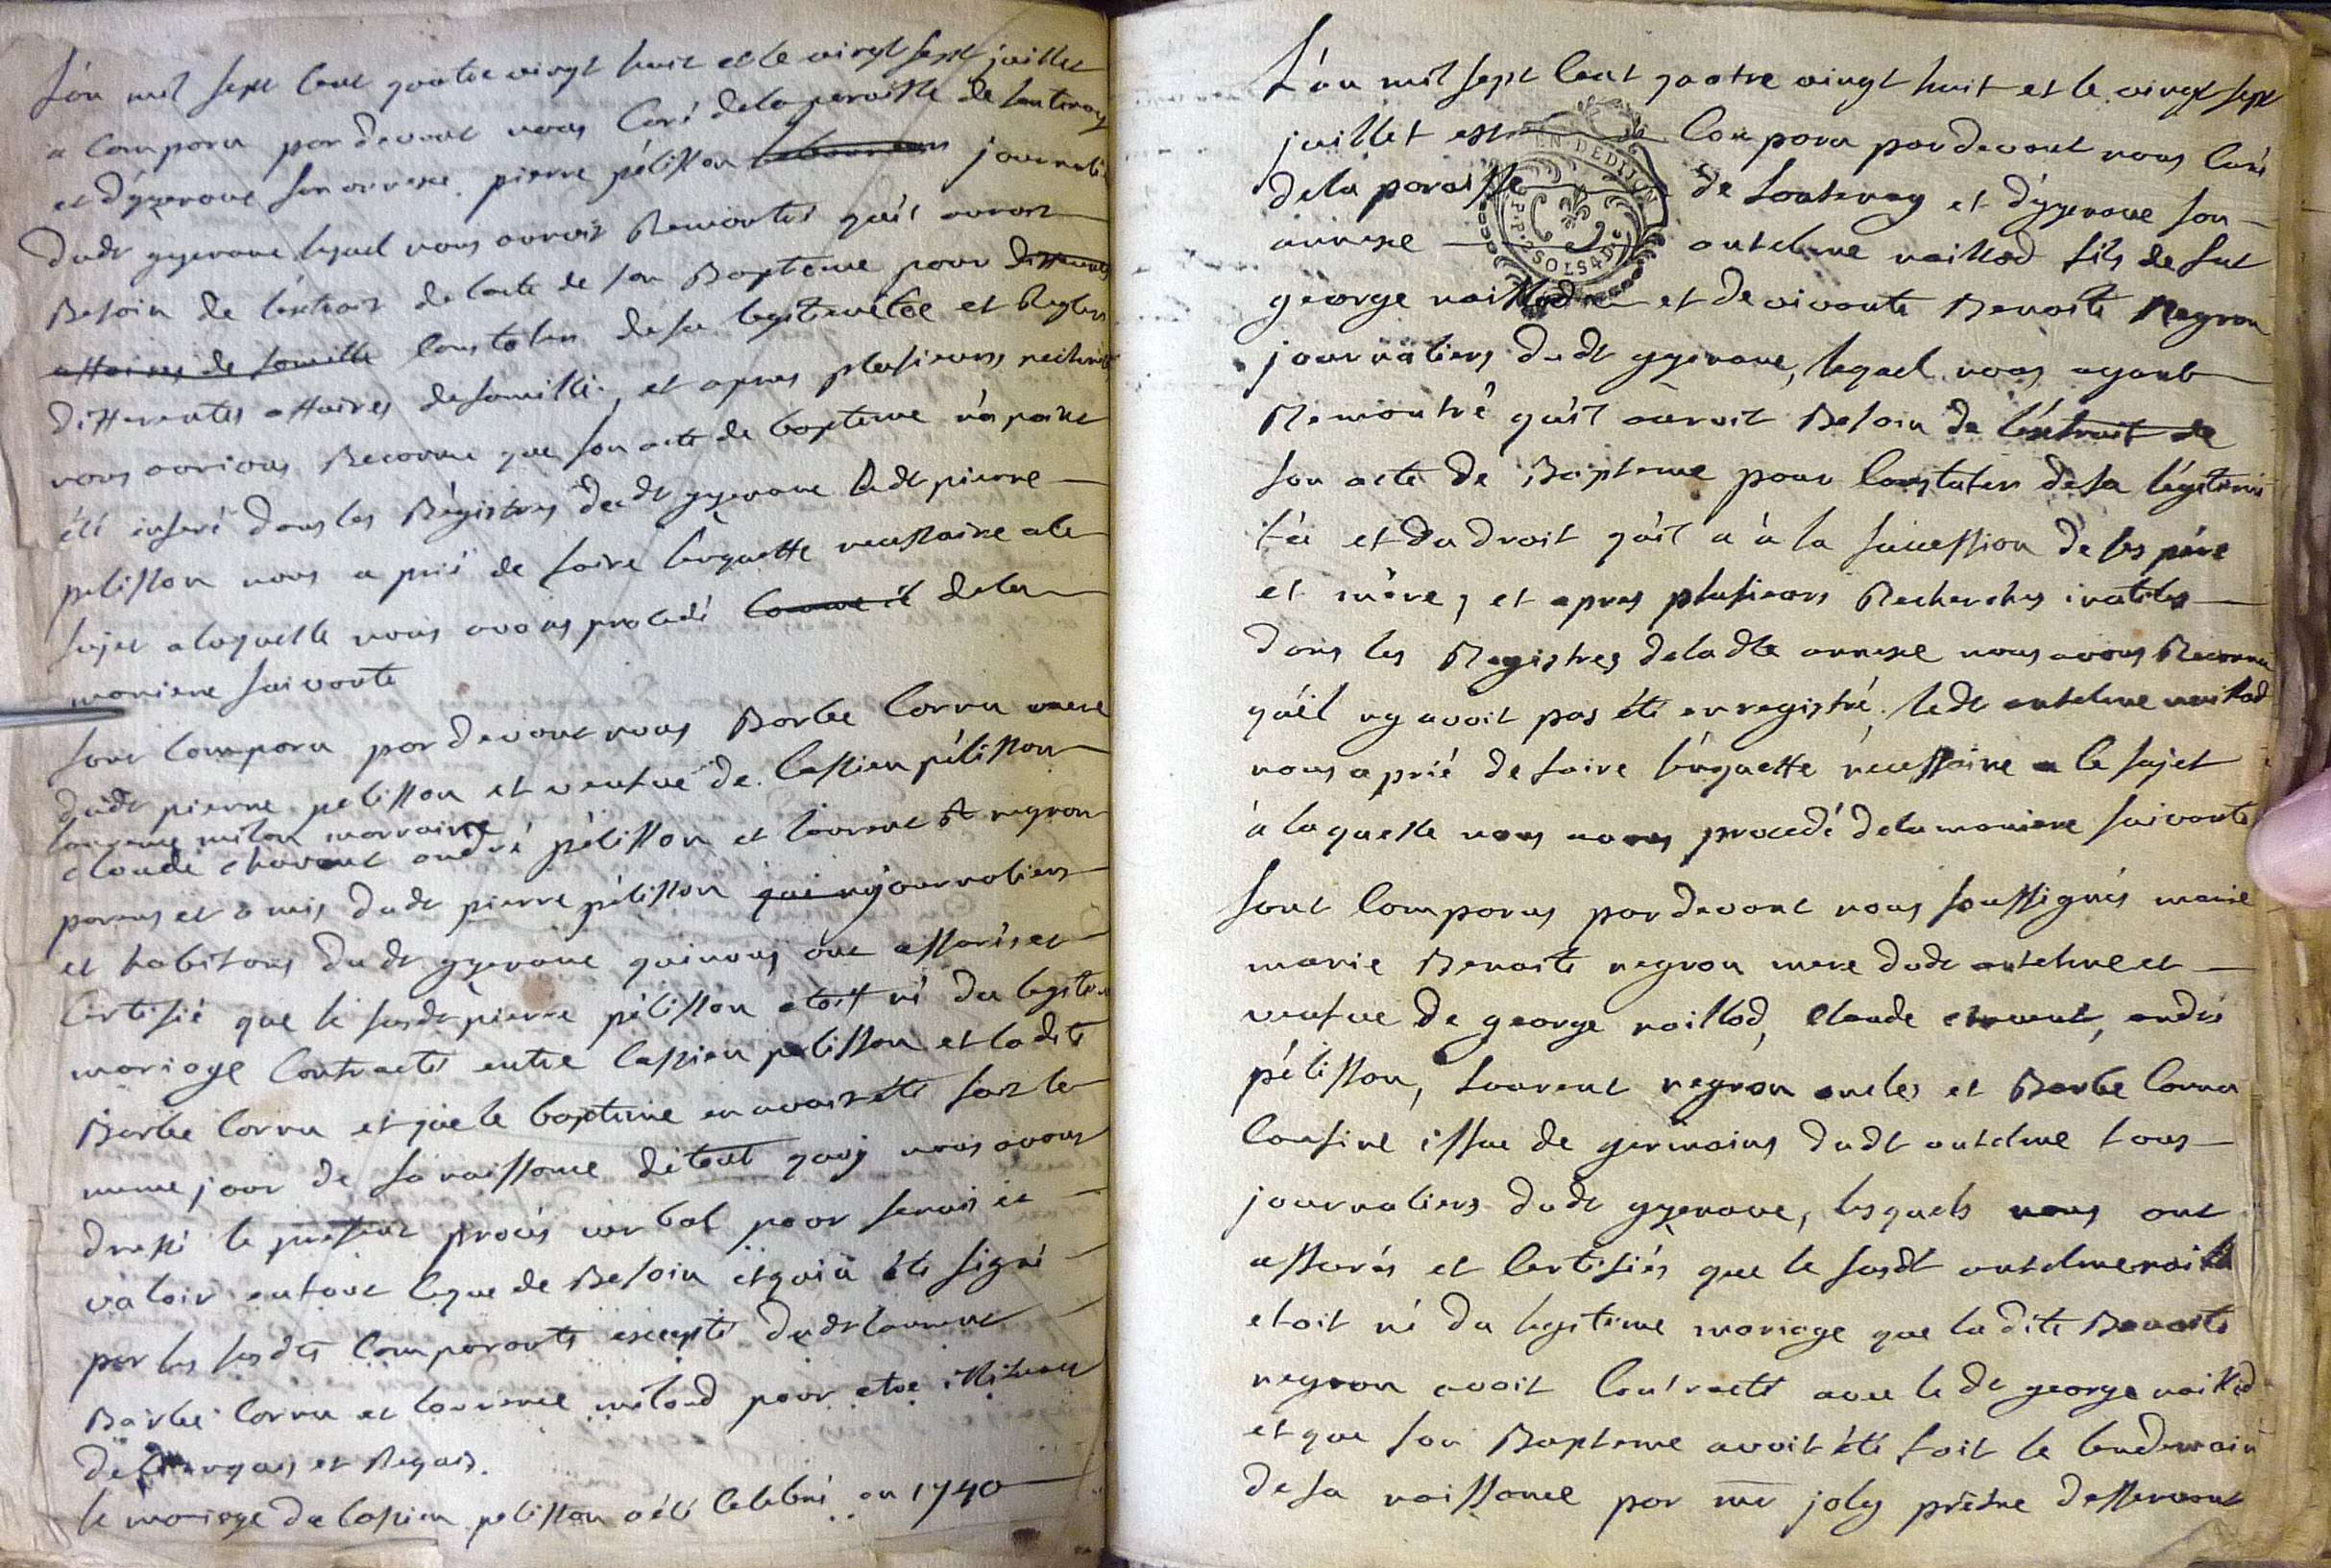 L'an mil sept cent quatre vingt huit et le vingt sept juillet
a comparu par devant nous curé de la paroisse de lontenay
et d'ygerane son annexe pierre pélisson journali
dudt ygerane lequel nous auroit Remontré qu'il auroit
Besoin de l'extrait de l'acte de son Bapteme pour differentes
affaires de famille constater de sa legitimitée et Regler
differentes affaires de famille, et apres plusieurs recherches
nous aurions Reconnu que son acte de bapteme n'a point
été inseré dans les Régistres dudt ygerane ledt pierre
pelisson nous a prié de faire l'enquette necessaire a le
sujet a laquelle nous avons procedé comme il de la
maniere suivante
sont comparu par devant nous Barbe Cornu mere
dudt pierre pelisson et veufve de cassien pélisson
laurence milon marraine
claude chavent andré pélisson et laurent negron
parens et amis dudt pierre pélisson journaliers
et habitans dudt ygerane qui nous ont assurés et
certifié que le susdt pierre pélisson etoit né du legitim
mariage contracté entre cassien pelisson et la dite
Barbe Cornu et que le bapteme en avoit etté fait le
meme jour de sa naissance de tout quoy nous avons
dressé le present procés verbal pour servir et
valoir autant que de Besoin et qui a été signé
par les susdts comparants excepté dudt laurent
Barbe Cornu et laurence miland pour etre illiteré
de enquis et Requis.
le mariage de cassien pelisson a été celebré en 1740
L'an mil sept cent quatre vingt huit et le vingt sept
juillet est comparu par devant nous curé
de la paroisse de lontenay et d'ygerane son
annexe antelme naillod fils de fut
george naillod et de vivante Benoite Negron
journaliers dudt ygerane, lequel nous ayant
Remontré qu'il auroit Besoin de l'extrait de
son acte de Bapteme pour constater de sa légitimi
tée et du droit qu'il a à la succession de ses père
et mère, et apres plusieurs Recherches inutiles
dans les Registres de ladte annexe nous avons Reconnu
qu'il n'y avoit pas été enregistré. ledt antelme naillod
nous a prié de faire l'enquette nécessaire a le sujet
à laquelle nous avons procedé de la maniere suivante
sont comparus par devant nous soussignés marie
marie Benoite negron mere dudt antelme et
veufve de george naillod, Claude chavent, andré
pélisson, laurent negron oncles et Barbe Cornu
cousine issue de germains dudt antelme tous
journaliers dudt ygerane, lesquels nous ont
assurés et certifiés que le susdt antelme naillod
etoit né du legitime mariage que la dite Benoite
negron avoit contracté avec ledt george naillod
et que son Bapteme avoit été fait le lendemain
de sa naissance par mr joly prêtre desservant
EN. DE DIJON
P.P. 2 SOLS 4 D